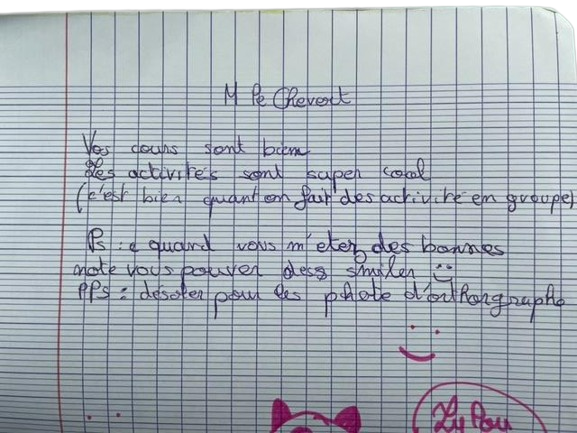 M Pe Chevert
Vos cours sont biem
Les activités sont super cool
(c'est bien quant on fait des activité en groupe)
Ps : e quand vous m'etez des bonnes
note vous pouver dess smiler
PPS : désoler pour les phote d'orthorgraphe
Lu Pou